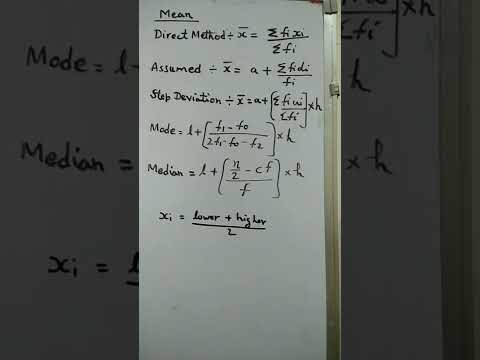 Mean
Direct Method ÷ x̄ = Σfixi / Σfi
Assumed ÷ x̄ = a + Σfidi / fi
Step Deviation ÷ x̄ = a + [Σfiui / Σfi] × h
Mode = l + (f1 - f0 / 2f1 - f0 - f2) × h
Median = l + (n/2 - cf / f) × h
xi = lower + higher / 2